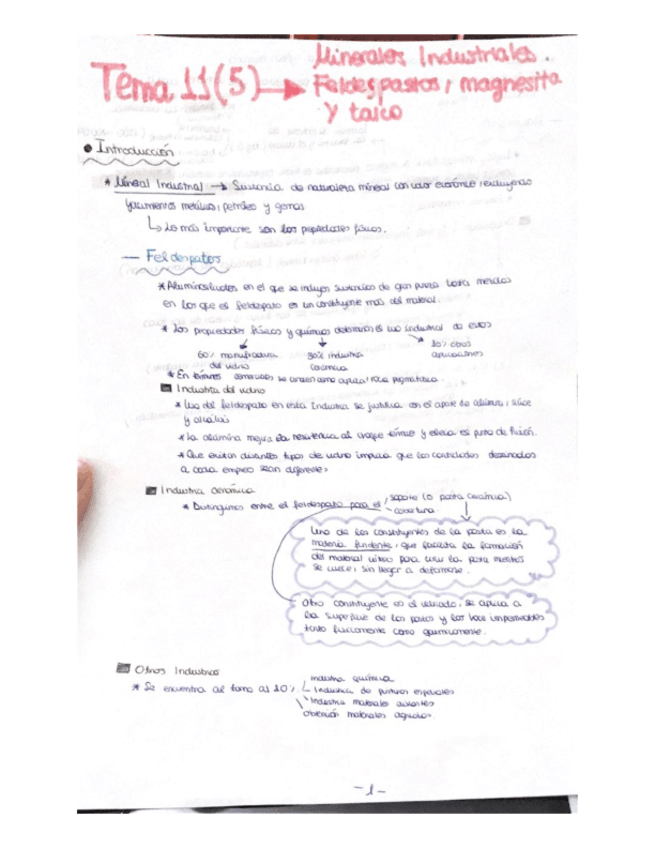 Tema 11(5) → Minerales Industriales.
Feldespastos, magnesita
y talco
• Introducción
* Mineral Industrial → Sustancia de naturaleza mineral con valor económico, excluyendo
yacimientos metálicos, petróleo y gemas
↳ Lo más importante son las propiedades físicas.
— Feldespatos
* Aluminosilicatos en el que se incluyen sustancias de gran pureza hasta mezclas
en las que el feldespato es un constituyente más del material.
* Las propiedades físicas y químicas determinan el uso industrial de estos
60% manufactura
del vidrio
30% industria
cerámica
10% otras
aplicaciones
* En términos comerciales se conocen como aplita, roca pegmatítica.
Industria del vidrio
* Uso del feldespato en esta Industria se justifica con el aporte de alúmina, sílice
y álcalis
* La alúmina mejora la resistencia al choque térmico y eleva el punto de fusión.
* Que existan distintos tipos de vidrio implica que las cantidades destinadas
a cada empleo sean diferentes
Industria cerámica
* Distinguimos entre el feldespato para el soporte (o pasta cerámica)
cobertura
Uno de los constituyentes de la pasta es la
materia fundente, que facilita la formación
del material vítreo para unir la pasta mientras
se cuece, sin llegar a deformarse.
Otro constituyente es el vidriado, se aplica a
la superficie de las pastas y las hace impermeables
tanto físicamente como químicamente.
Otras Industrias
* Se encuentra en torno al 10%
industria química
Industria de pinturas especiales
Industria materiales aislantes
obtención materiales
-1-